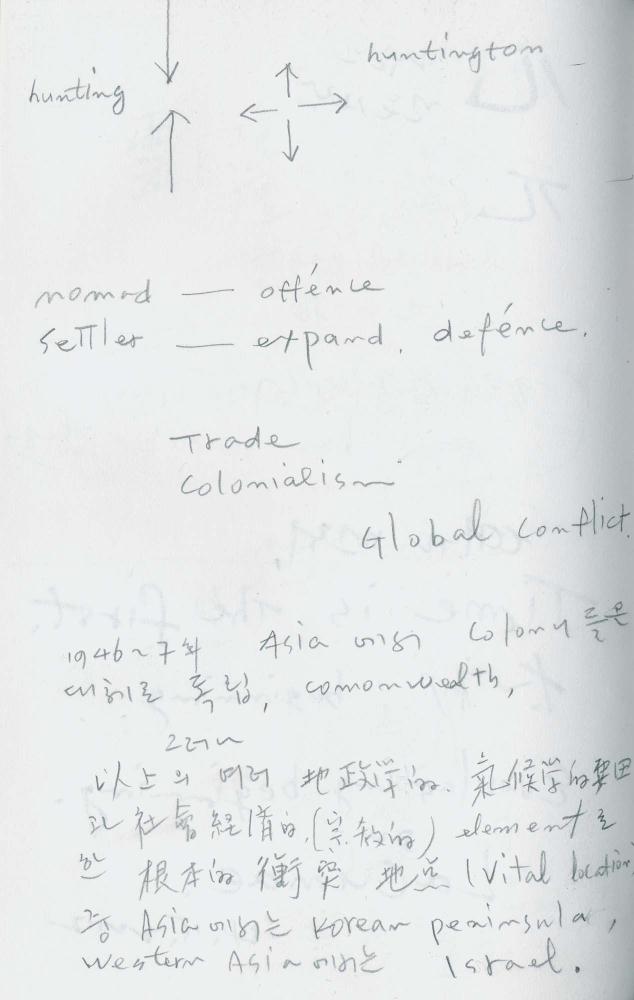 huntington
hunting
nomad — offénce
settler — expand. defénce.
Trade
Colonialism
Global Conflict.
1946~7年 Asia에서 Colony들은
대체로 독립, comonwealth,
그러나
以上의 여러 地政学的. 氣候学的 要因
과 社會経済的.(宗教的) element로
한 根本的 衝突 地点 (Vital location
중 Asia에서는 Korean peninsula,
Western Asia에서는 Israel.